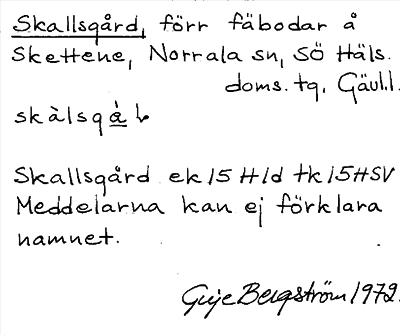 Skallsgård, förr fäbodar å
Skettene, Norrala sn, SÖ Häls.
doms. tg, Gävl.l.
skàlsgà̲ḷ
Skallsgård ek 15 H1d tk 15HSV
Meddelarna kan ej förklara
namnet.
Guje Bergström 1972.